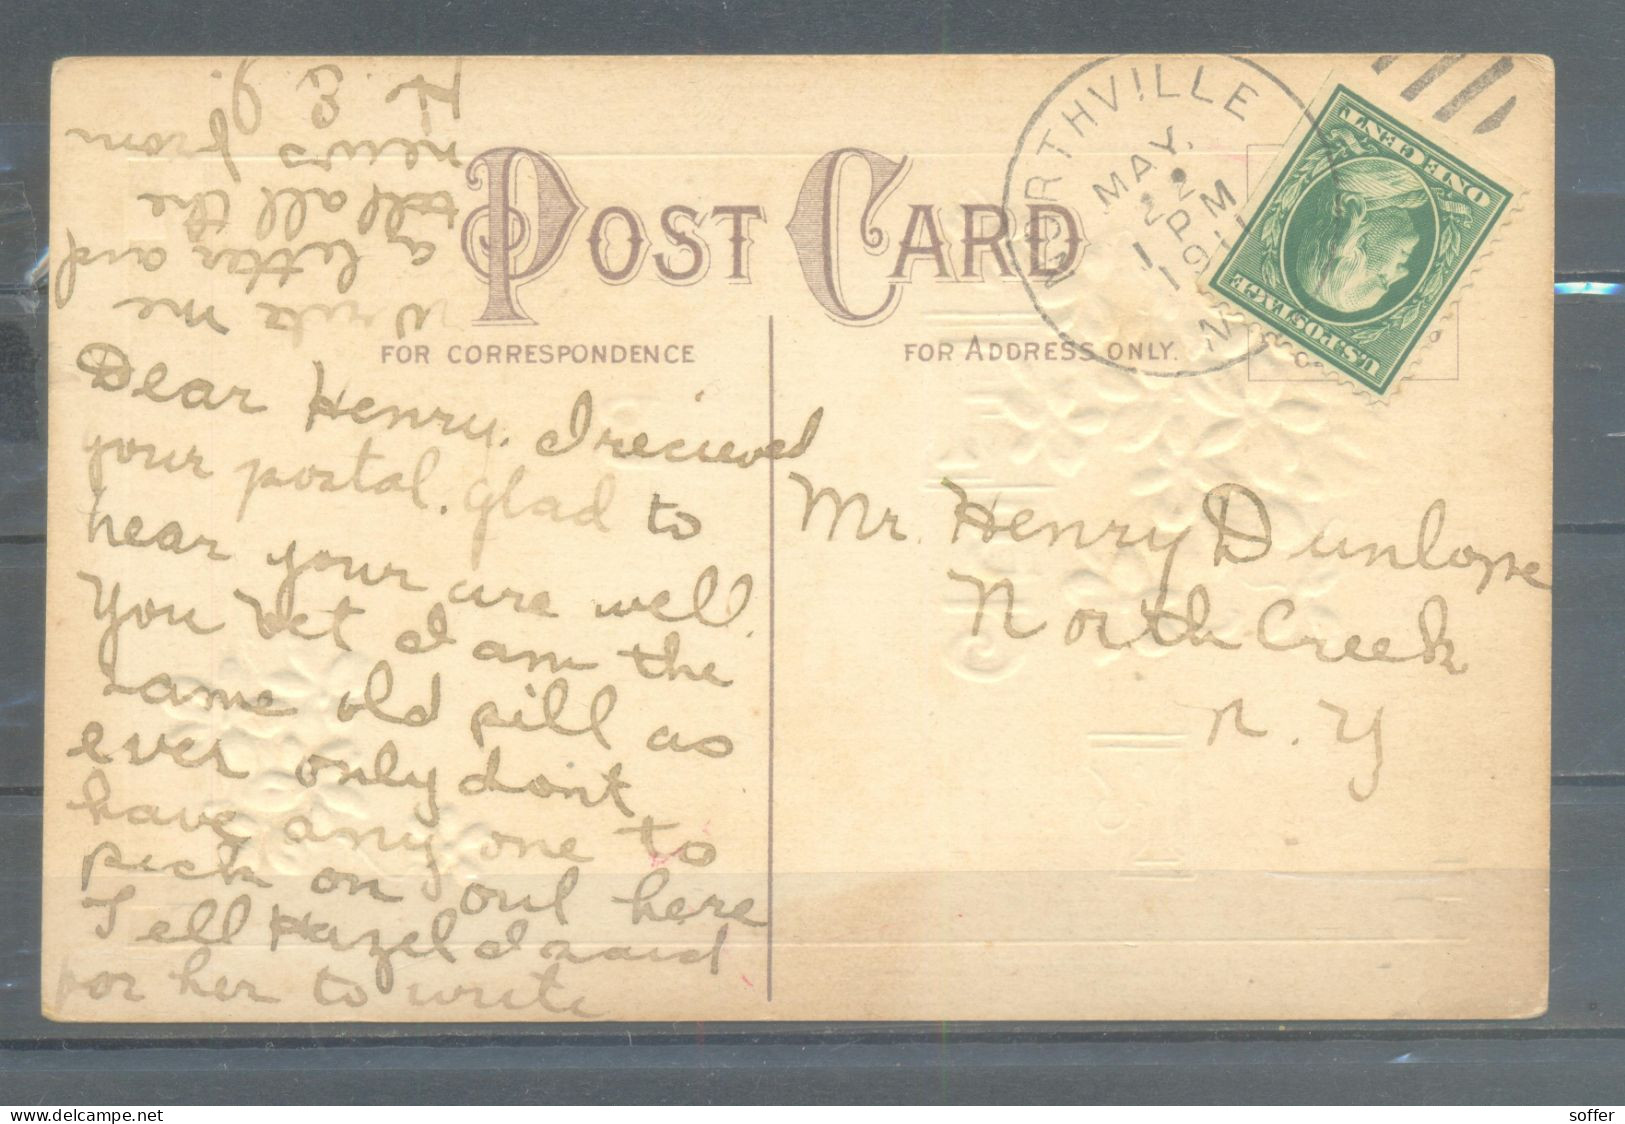 POST CARD
FOR CORRESPONDENCE
FOR ADDRESS ONLY.
NORTHVILLE
MAY.
22
1 PM
191
N
U.S. POSTAGE
ONE CENT
Dear Henry. I recieved
your postal. glad to
hear your are well.
You bet I am the
same old pill as
ever only dont
have any one to
pick on out here
Tell Hazel I said
for her to write
write me
a letter and
tell all the
news from
H. E. G.
Mr. Henry Dunlop
North Creek
N. Y
soffer